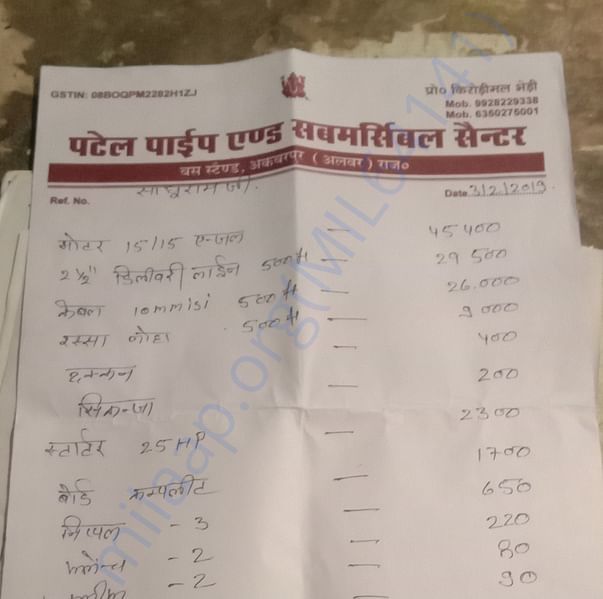 GSTIN: 08BOQPM2282H1ZJ
प्रो० किरोड़ीमल भेड़ी
Mob. 9928229338
Mob. 6350275001
पटेल पाईप एण्ड सबमर्सिबल सैन्टर
बस स्टैण्ड, अकबरपुर ( अलवर ) राज०
Ref. No. साधूराम जी. Date 3/2/2019
मोटर 15/15 एन्जल — 45400
2 ½" डिलीवरी लाईन 500 ft — 29500
केबल 10mm 500 ft — 26.000
रस्सा लोहा . 500 ft — 9000
ढक्कन — 400
सिकन्जा 200
स्टार्टर 25HP — 2300
बोर्ड कम्पलीट — 1700
निप्पल - 3 — 650
- 2 — 220
- 2 — 80
90
milaap.org